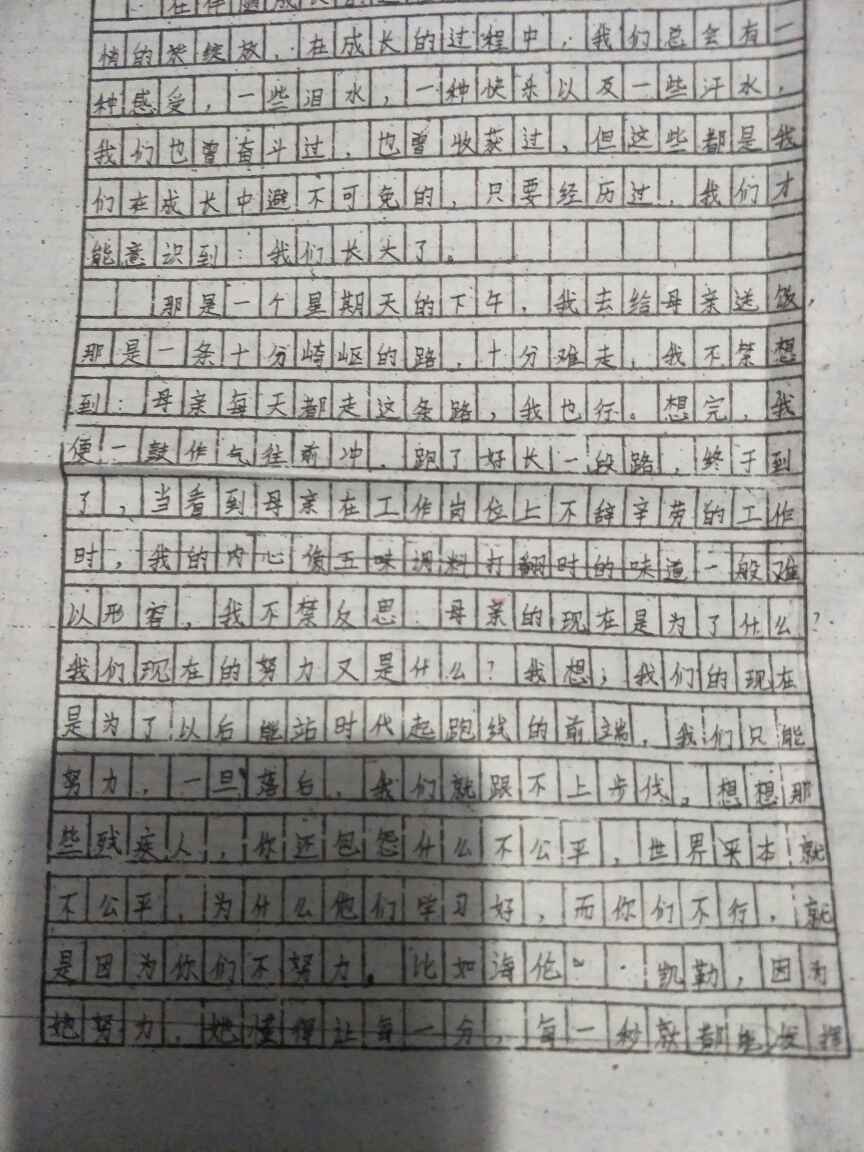 在伴随成长
情的然绽放，在成长的过程中，我们总会有一
种感受，一些泪水，一种快乐以及一些汗水，
我们也曾奋斗过，也曾收获过，但这些都是我
们在成长中避不可免的，只要经历过，我们才
能意识到：我们长大了。
那是一个星期天的下午，我去给母亲送饭，
那是一条十分崎岖的路，十分难走，我不禁想
到：母亲每天都走这条路，我也行。想完，我
便一鼓作气往前冲，跑了好长一段路，终于到
了，当看到母亲在工作岗位上不辞辛劳的工作
时，我的内心像五味调料打翻时的味道一般难
以形容，我不禁反思：母亲的现在是为了什么？
我们现在的努力又是什么？我想；我们的现在
是为了以后能站时代起跑线的前端，我们只能
努力，一旦落后，我们就跟不上步伐，想想那
些残疾人，你还包怨什么不公平，世界采本就
不公平，为什么他们学习好，而你们不行，就
是因为你们不努力。比如海伦·凯勒，因为
她努力，她懂得让每一分，每一秒就都能发挥